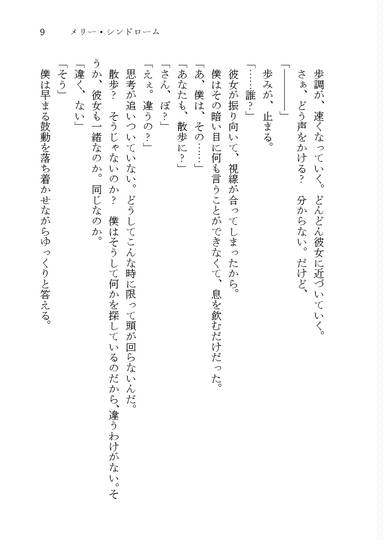 9　メリー・シンドローム
　歩調が、速くなっていく。どんどん彼女に近づいていく。
　さぁ、どう声をかける？　分からない。だけど、
「―――」
　歩みが、止まる。
「……誰？」
　彼女が振り向いて、視線が合ってしまったから。
　僕はその暗い目に何も言うことができなくて、息を飲むだけだった。
「あ、僕は、その……」
「あなたも、散歩に？」
「さん、ぽ？」
「えぇ。違うの？」
　思考が追いついていない。どうしてこんな時に限って頭が回らないんだ。
　散歩？　そうじゃないのか？　僕はそうして何かを探しているのだから、違うわけがない。そ
うか、彼女も一緒なのか。同じなのか。
「違く、ない」
「そう」
　僕は早まる鼓動を落ち着かせながらゆっくりと答える。